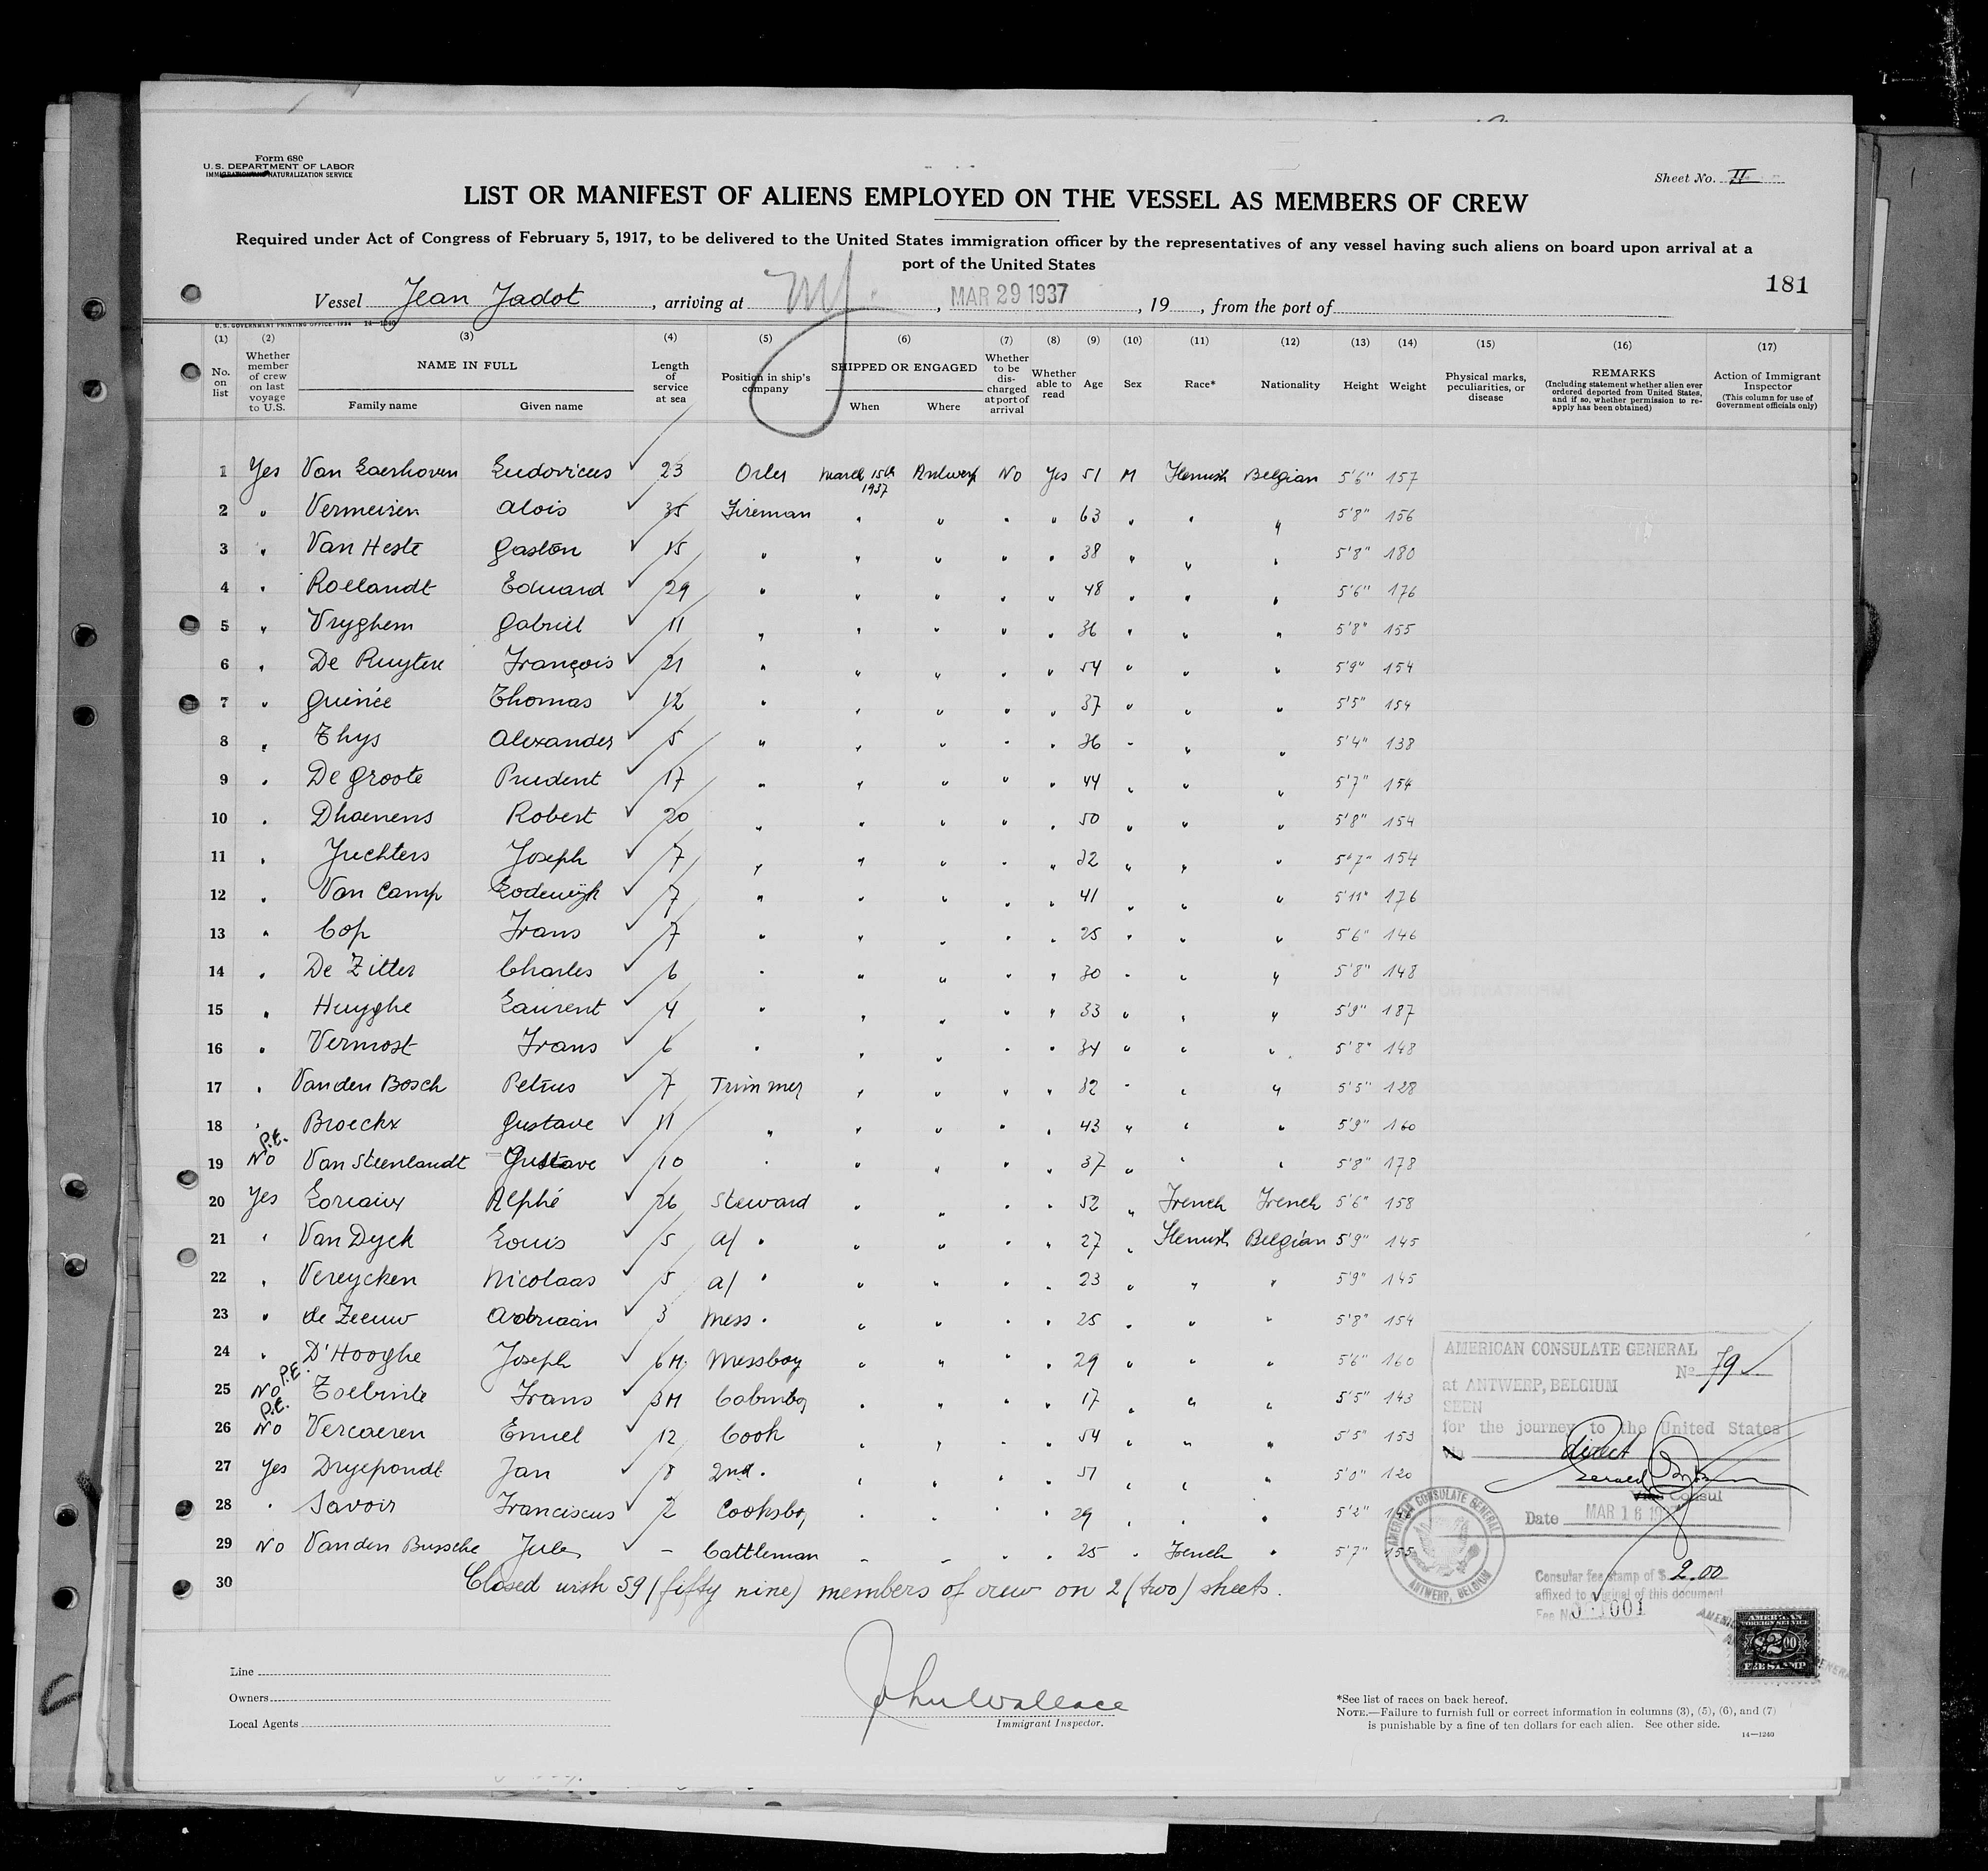 Form 680
U. S. DEPARTMENT OF LABOR
IMMIGRATION AND NATURALIZATION SERVICE
Sheet No. II
LIST OR MANIFEST OF ALIENS EMPLOYED ON THE VESSEL AS MEMBERS OF CREW
Required under Act of Congress of February 5, 1917, to be delivered to the United States immigration officer by the representatives of any vessel having such aliens on board upon arrival at a
port of the United States
181
Vessel Jean Jadot, arriving at NY., MAR 29 1937, 19, from the port of
U. S. GOVERNMENT PRINTING OFFICE: 1934 14—1240
(1) (2) (3) (4) (5) (6) (7) (8) (9) (10) (11) (12) (13) (14) (15) (16) (17)
No. on list
Whether member of crew on last voyage to U.S.
NAME IN FULL
Family name Given name
Length of service at sea
Position in ship's company
SHIPPED OR ENGAGED
When Where
Whether to be discharged at port of arrival
Whether able to read
Age Sex Race* Nationality Height Weight
Physical marks, peculiarities, or disease
REMARKS
(Including statement whether alien ever ordered deported from United States, and if so, whether permission to re-apply has been obtained)
Action of Immigrant Inspector
(This column for use of Government officials only)
1 Yes Van Laerhoven Ludovicus ✓ 23 Oiler March 15th 1937 Antwerp No Yes 51 M Flemish Belgian 5'6" 157
2 " Vermeiren Alois ✓ 35 Fireman " " " " 63 " " " 5'8" 156
3 " Van Heste Gaston ✓ 15 " " " " " 38 " " " 5'8" 180
4 " Rollandt Eduard ✓ 29 " " " " " 48 " " " 5'6" 176
5 " Vryghem Gabriel ✓ 11 " " " " " 36 " " " 5'8" 155
6 " De Ruytere François ✓ 21 " " " " " 54 " " " 5'9" 154
7 " Guinée Thomas ✓ 12 " " " " " 37 " " " 5'5" 154
8 " Thys Alexander ✓ 5 " " " " " 36 " " " 5'4" 138
9 " De Groote Prudent ✓ 17 " " " " " 44 " " " 5'7" 154
10 " Dhaenens Robert ✓ 20 " " " " " 50 " " " 5'8" 154
11 " Juchters Joseph ✓ 7 " " " " " 32 " " " 5'7" 154
12 " Van Camp Lodewijk ✓ 7 " " " " " 41 " " " 5'11" 176
13 " Cop Frans ✓ 7 " " " " " 25 " " " 5'6" 146
14 " De Zitter Charles ✓ 6 " " " " " 30 " " " 5'8" 148
15 " Huyghe Laurent ✓ 4 " " " " " 33 " " " 5'9" 187
16 " Vermost Frans ✓ 6 " " " " " 34 " " " 5'8" 148
17 " Vanden Bosch Petrus ✓ 7 Trimmer " " " " 32 " " " 5'5" 128
18 " Broeckx Gustave ✓ 11 " " " " " 43 " " " 5'9" 160
19 P.E. No Van Steenlandt Gustave ✓ 10 " " " " " 37 " " " 5'8" 178
20 Yes Loriaux Alphé ✓ 26 Steward " " " " 52 " French French 5'6" 158
21 " Van Dyck Louis ✓ 5 a/ " " " " " 27 " Flemish Belgian 5'9" 145
22 " Vereycken Nicolaas ✓ 5 a/ " " " " " 23 " " " 5'9" 145
23 " de Zeeuw Adriaan ✓ 3 Mess " " " " " 25 " " " 5'8" 154
24 " D'Hooghe Joseph ✓ 6 M. Messboy " " " " 29 " " " 5'6" 160
25 P.E. No Frans ✓ 3 M Cabinboy " " " " 17 " " " 5'5" 143
26 P.E. No Vercaeren Emiel ✓ 12 Cook " " " " 54 " " " 5'5" 153
27 Yes Dryepondt Jan ✓ 8 2nd " " " " " 51 " " " 5'0" 120
28 " Savoir Franciscus ✓ 2 Cooksboy " " " 29 " " " 5'2"
29 No Vanden Bussche Jules ✓ - Cattleman " " " " 25 " French " 5'7" 155
30 Closed with 59 (fifty nine) members of crew on 2 (two) sheets.
AMERICAN CONSULATE GENERAL
No 79
at ANTWERP, BELGIUM
SEEN
for the journey to the United States
via direct
Vice Consul
Date MAR 16 1937
AMERICAN CONSULATE GENERAL ANTWERP, BELGIUM
Consular fee stamp of $ 2.00
affixed to original of this document
Fee No. 1001
AMERICAN FOREIGN SERVICE $2.00 FEE STAMP
Line
Owners
Local Agents
John Wallace
Immigrant Inspector.
*See list of races on back hereof.
NOTE.—Failure to furnish full or correct information in columns (3), (5), (6), and (7)
is punishable by a fine of ten dollars for each alien. See other side.
14—1240